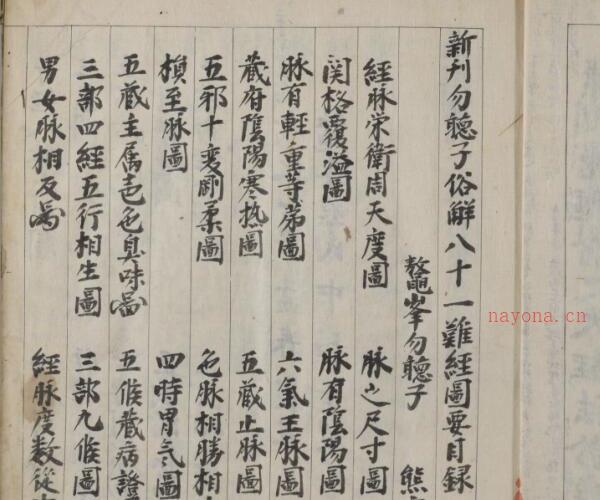 新刊勿聽子俗解八十一難經圖要目録
鼇峯勿聽子 熊
經脉榮衛周天度圖 脉之尺寸圖
関格覆溢圖 脉有隂陽圖
脉有輕重等苐圖 六氣王脉圖
藏府隂陽寒热圖 五藏止脉圖
五邪十变剛柔圖 色脉相勝相
損至脉圖 四時胃气圖
五藏主属声色臭味啚 五候藏病證
三部四經五行相生圖 三部九候圖
男女脉相反啚 經脉度数從
nayona.cn